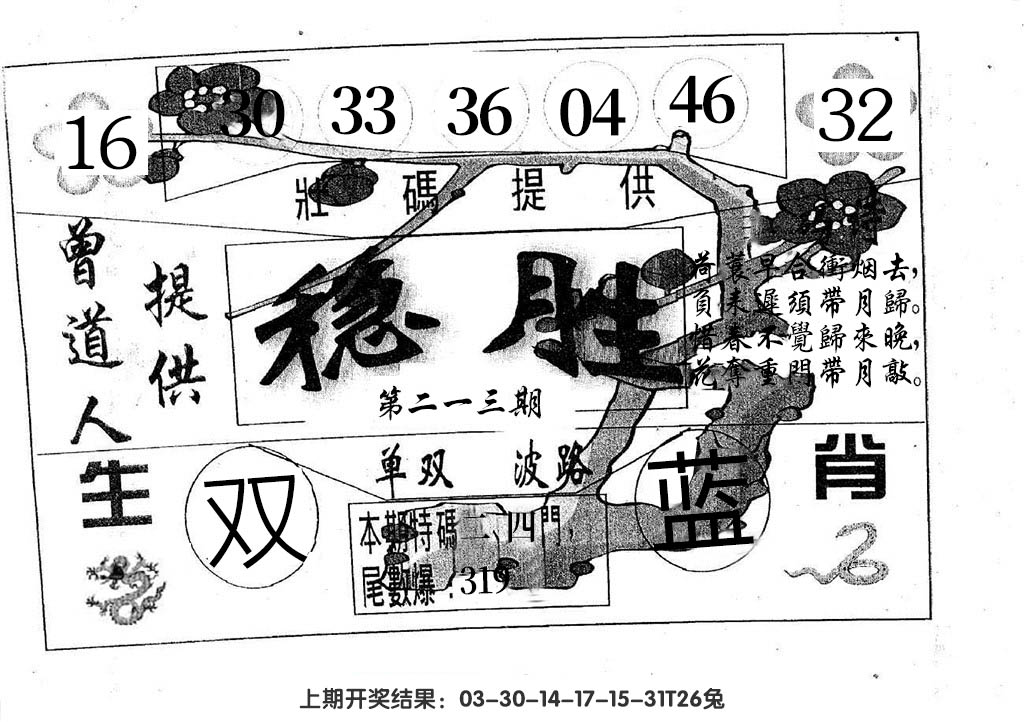 16 30 33 36 04 46 32
壯碼提供
曾道人
提供
稳胜
第二一三期
荷蓑早合衝烟去,
負耒遲須帶月歸。
惜春不覺歸來晚,
花奪重門帶月敲。
单双 波路
生 双 蓝 肖
本期特碼二、四門,
尾數爆:319
上期开奖结果：03-30-14-17-15-31T26兔